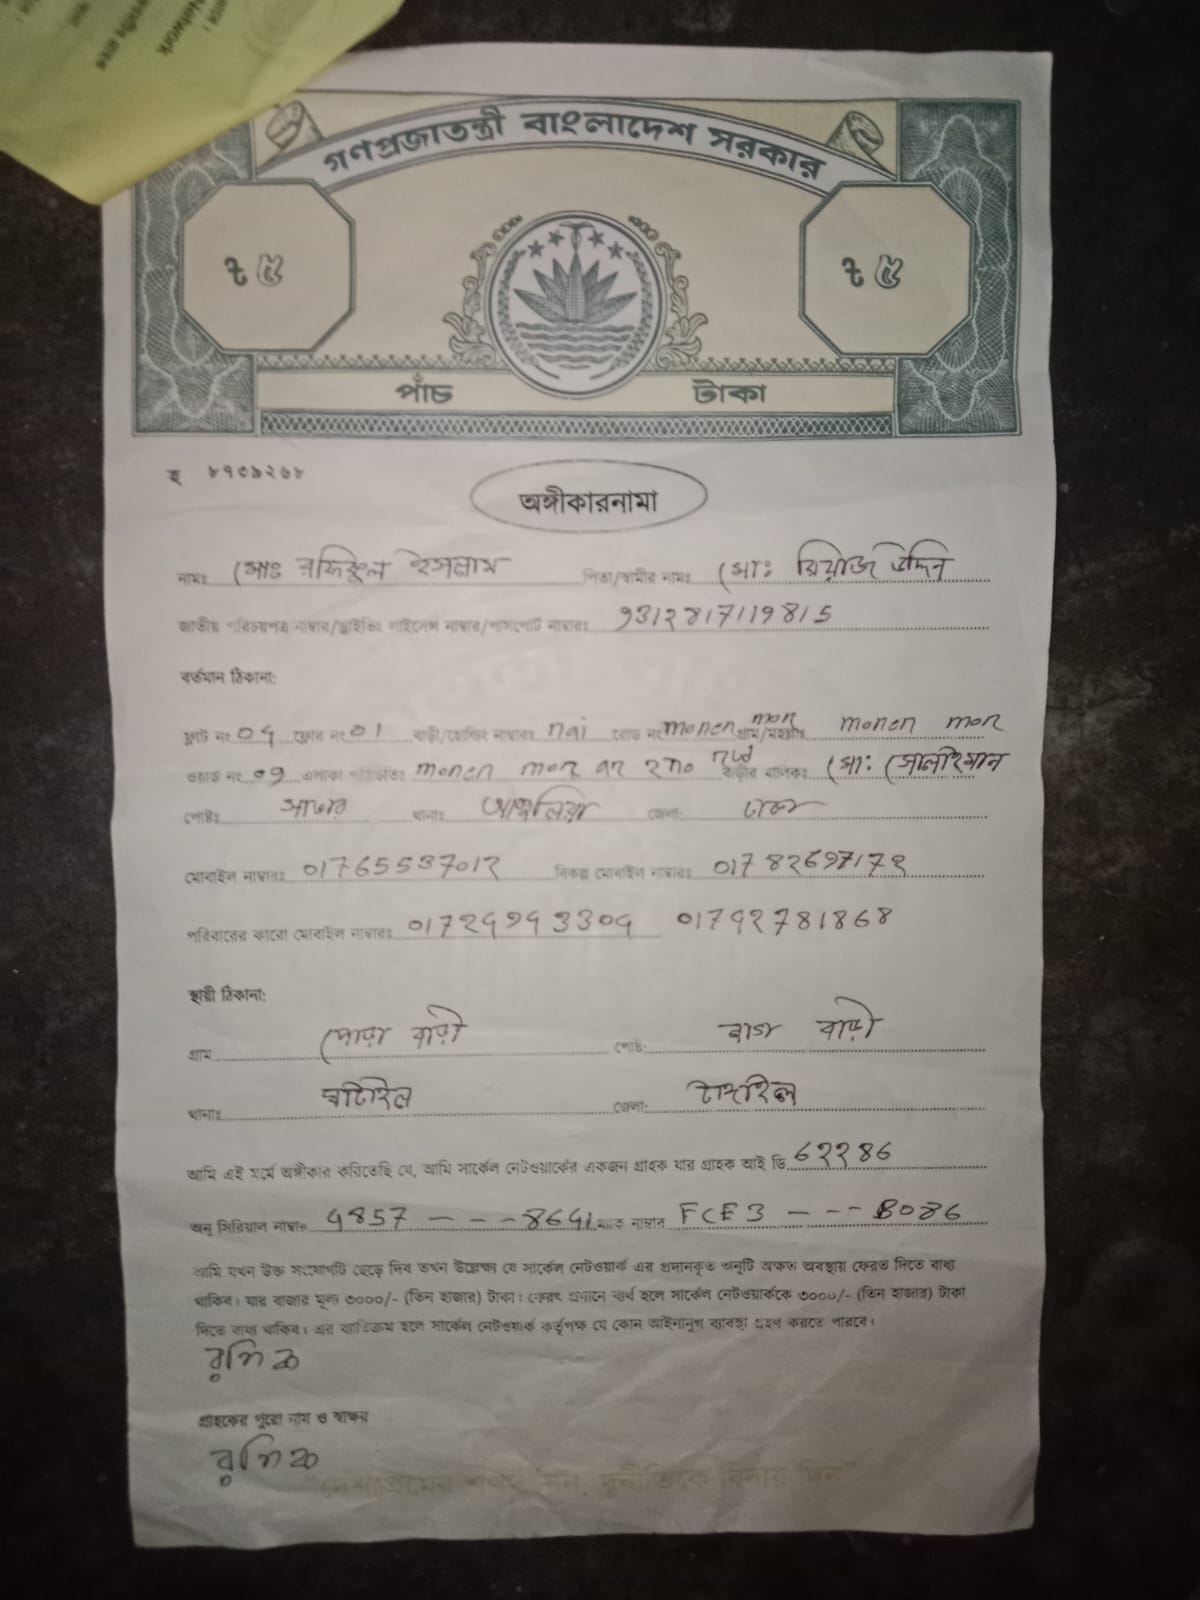 Network
গণপ্রজাতন্ত্রী বাংলাদেশ সরকার
৳ ৫ ৳ ৫
পাঁচ টাকা
হ ৮৭৩৯২৬৮
অঙ্গীকারনামা
নামঃ মোঃ রফিকুল ইসলাম পিতা/স্বামীর নামঃ মোঃ রিয়াজ উদ্দিন
জাতীয় পরিচয়পত্র নাম্বার/ড্রাইভিং লাইসেন্স নাম্বার/পাসপোর্ট নাম্বারঃ 9312817119815
বর্তমান ঠিকানা:
ফ্লাট নং 04 ফ্লোর নং 01 বাড়ী/হোল্ডিং নাম্বারঃ nai রোড নং monen mor গ্রাম/মহল্লাঃ monen mor
ওয়ার্ড নং 09 এলাকা পরিচিতঃ monen mor বাড়ীর মালিকঃ মো: সোলাইমান
পোষ্টঃ সাভার থানাঃ আশুলিয়া জেলা: ঢাকা
মোবাইল নাম্বারঃ 01765537012 বিকল্প মোবাইল নাম্বারঃ 01782697172
পরিবারের কারো মোবাইল নাম্বারঃ 01724943304 01792781868
স্থায়ী ঠিকানা:
গ্রাম পোড়া বাড়ী পোষ্ট: বাড়ী
থানাঃ ঘাটাইল জেলা: টাঙ্গাইল
আমি এই মর্মে অঙ্গীকার করিতেছি যে, আমি সার্কেল নেটওয়ার্কের একজন গ্রাহক যার গ্রাহক আই ডি 62286
অনু সিরিয়াল নাম্বার 4857 - - - 8641 ম্যাক নাম্বার FCE3 - - - 8086
আমি যখন উক্ত সংযোগটি ছেড়ে দিব তখন উল্লেক্ষ্য যে সার্কেল নেটওয়ার্ক এর প্রদানকৃত অনুটি অক্ষত অবস্থায় ফেরত দিতে বাধ্য
থাকিব। যার বাজার মূল্য ৩০০০/- (তিন হাজার) টাকা। ফেরৎ প্রদানে ব্যর্থ হলে সার্কেল নেটওয়ার্ককে ৩০০০/- (তিন হাজার) টাকা
দিতে বাধ্য থাকিব। এর ব্যতিক্রম হলে সার্কেল নেটওয়ার্ক কর্তৃপক্ষ যে কোন আইনানুগ ব্যবস্থা গ্রহণ করতে পারবে।
গ্রাহকের পুরো নাম ও স্বাক্ষর
"দেশপ্রেমের শপথ নিন, দুর্নীতিকে বিদায় দিন"